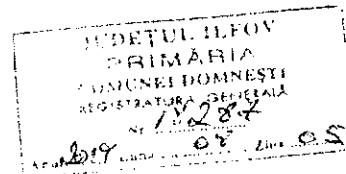 JUDEȚUL ILFOV
PRIMĂRIA
COMUNEI DOMNEȘTI
REGISTRATURA GENERALĂ
Nr.
Anul 2019 Luna Ziua 05